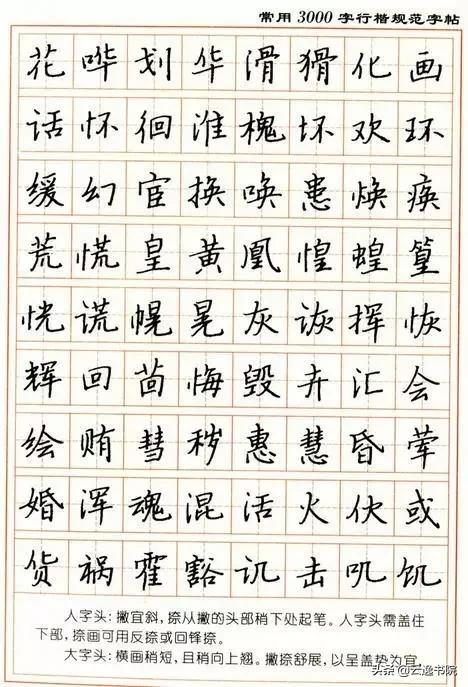 常用3000字行楷规范字帖
花哗划华滑猾化画
话怀徊淮槐坏欢环
缓幻宦换唤患焕痪
荒慌皇黄凰惶蝗篁
恍谎幌晃灰诙挥恢
辉回茴悔毁卉汇会
绘贿彗秽惠慧昏荤
婚浑魂混活火伙或
货祸霍豁讥击叽饥
人字头:撇宜斜,捺从撇的头部稍下处起笔。人字头需盖住
下部,捺画可用反捺或回锋捺。
大字头:横画稍短,且稍向上翘。撇捺舒展,以呈盖势为宜。
头条@云逸书院